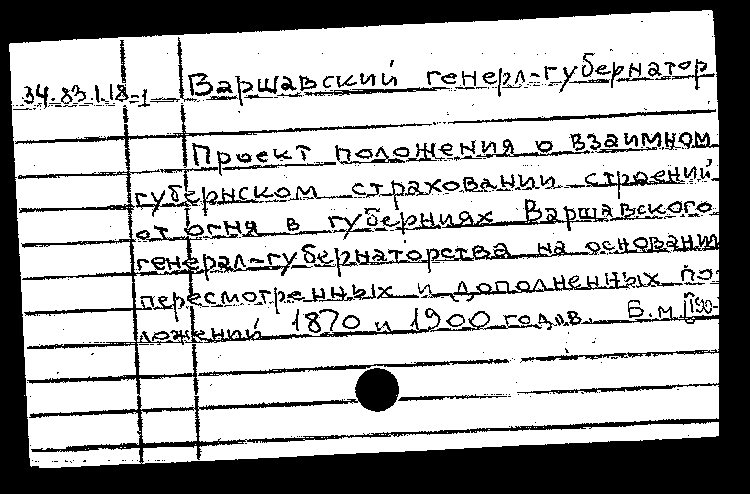 34.83.1.18-1 Варшавский генерл-губернатор
Проект положения о взаимном
губернском страховании строений
от огня в губерниях Варшавского
генерал-губернаторства на основании
пересмотренных и дополненных по-
ложений 1870 и 1900 годов. Б.м.